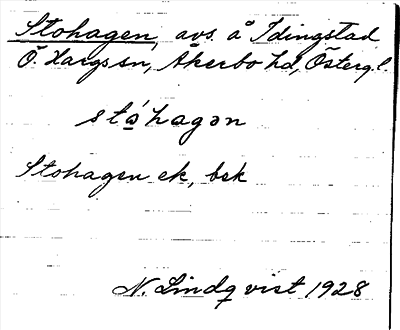 Stohagen, avs. å Idingstad
Ö. Hargs sn, Åkerbo hd, Östergl.
stó̲hagən
Stohagen ek, bek
N. Lindqvist 1928